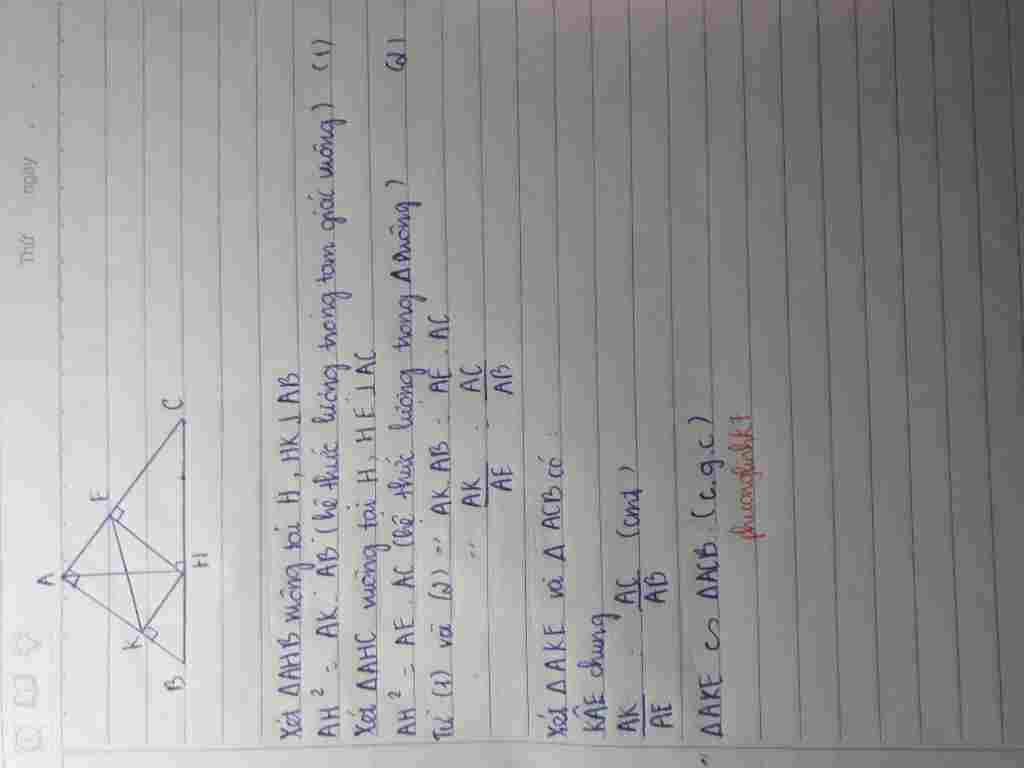 Thứ ngày
A
E
K
B
H
C
Xét ΔAHB vuông tại H, HK⊥AB
AH² = AK. AB (hệ thức lượng trong tam giác vuông) (1)
Xét ΔAHC vuông tại H, HE⊥AC
AH² = AE. AC (hệ thức lượng trong Δ vuông) (2)
Từ (1) và (2) => AK. AB = AE. AC
=> AK/AE = AC/AB
Xét ΔAKE và ΔACB có:
KÂE chung
AK/AE = AC/AB (cmt)
=> ΔAKE ∽ ΔACB (c.g.c)